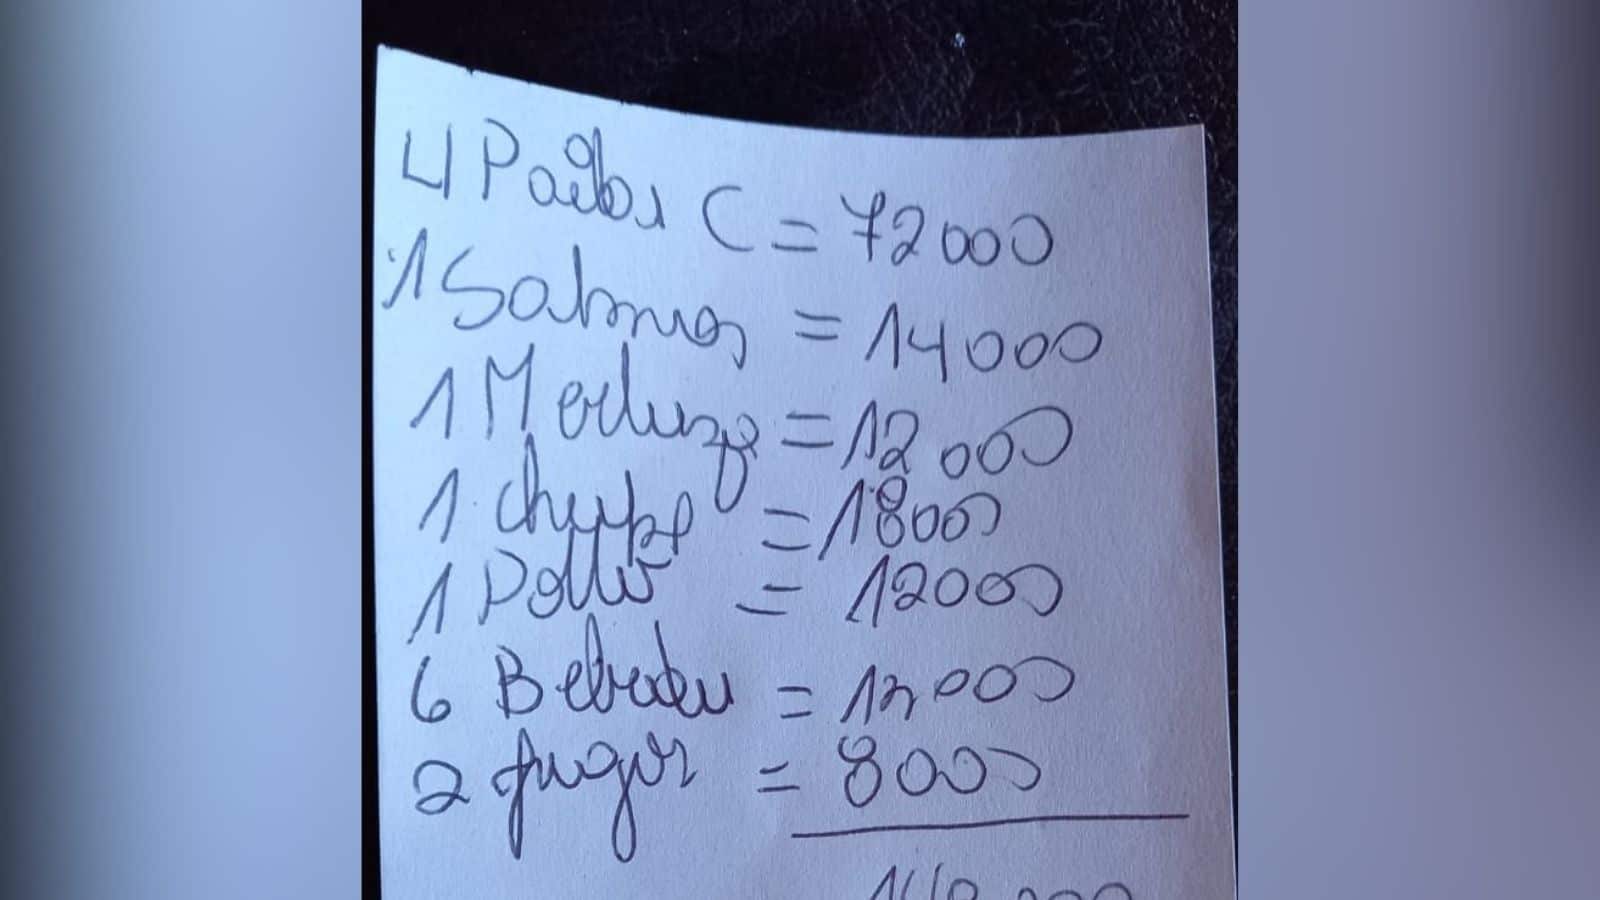 4 Pailas C = 72000
1 Salmon = 14000
1 Merluza = 12000
1 chupe = 18000
1 Pollo = 12000
6 Bebidas = 12000
2 jugos = 8000
148000